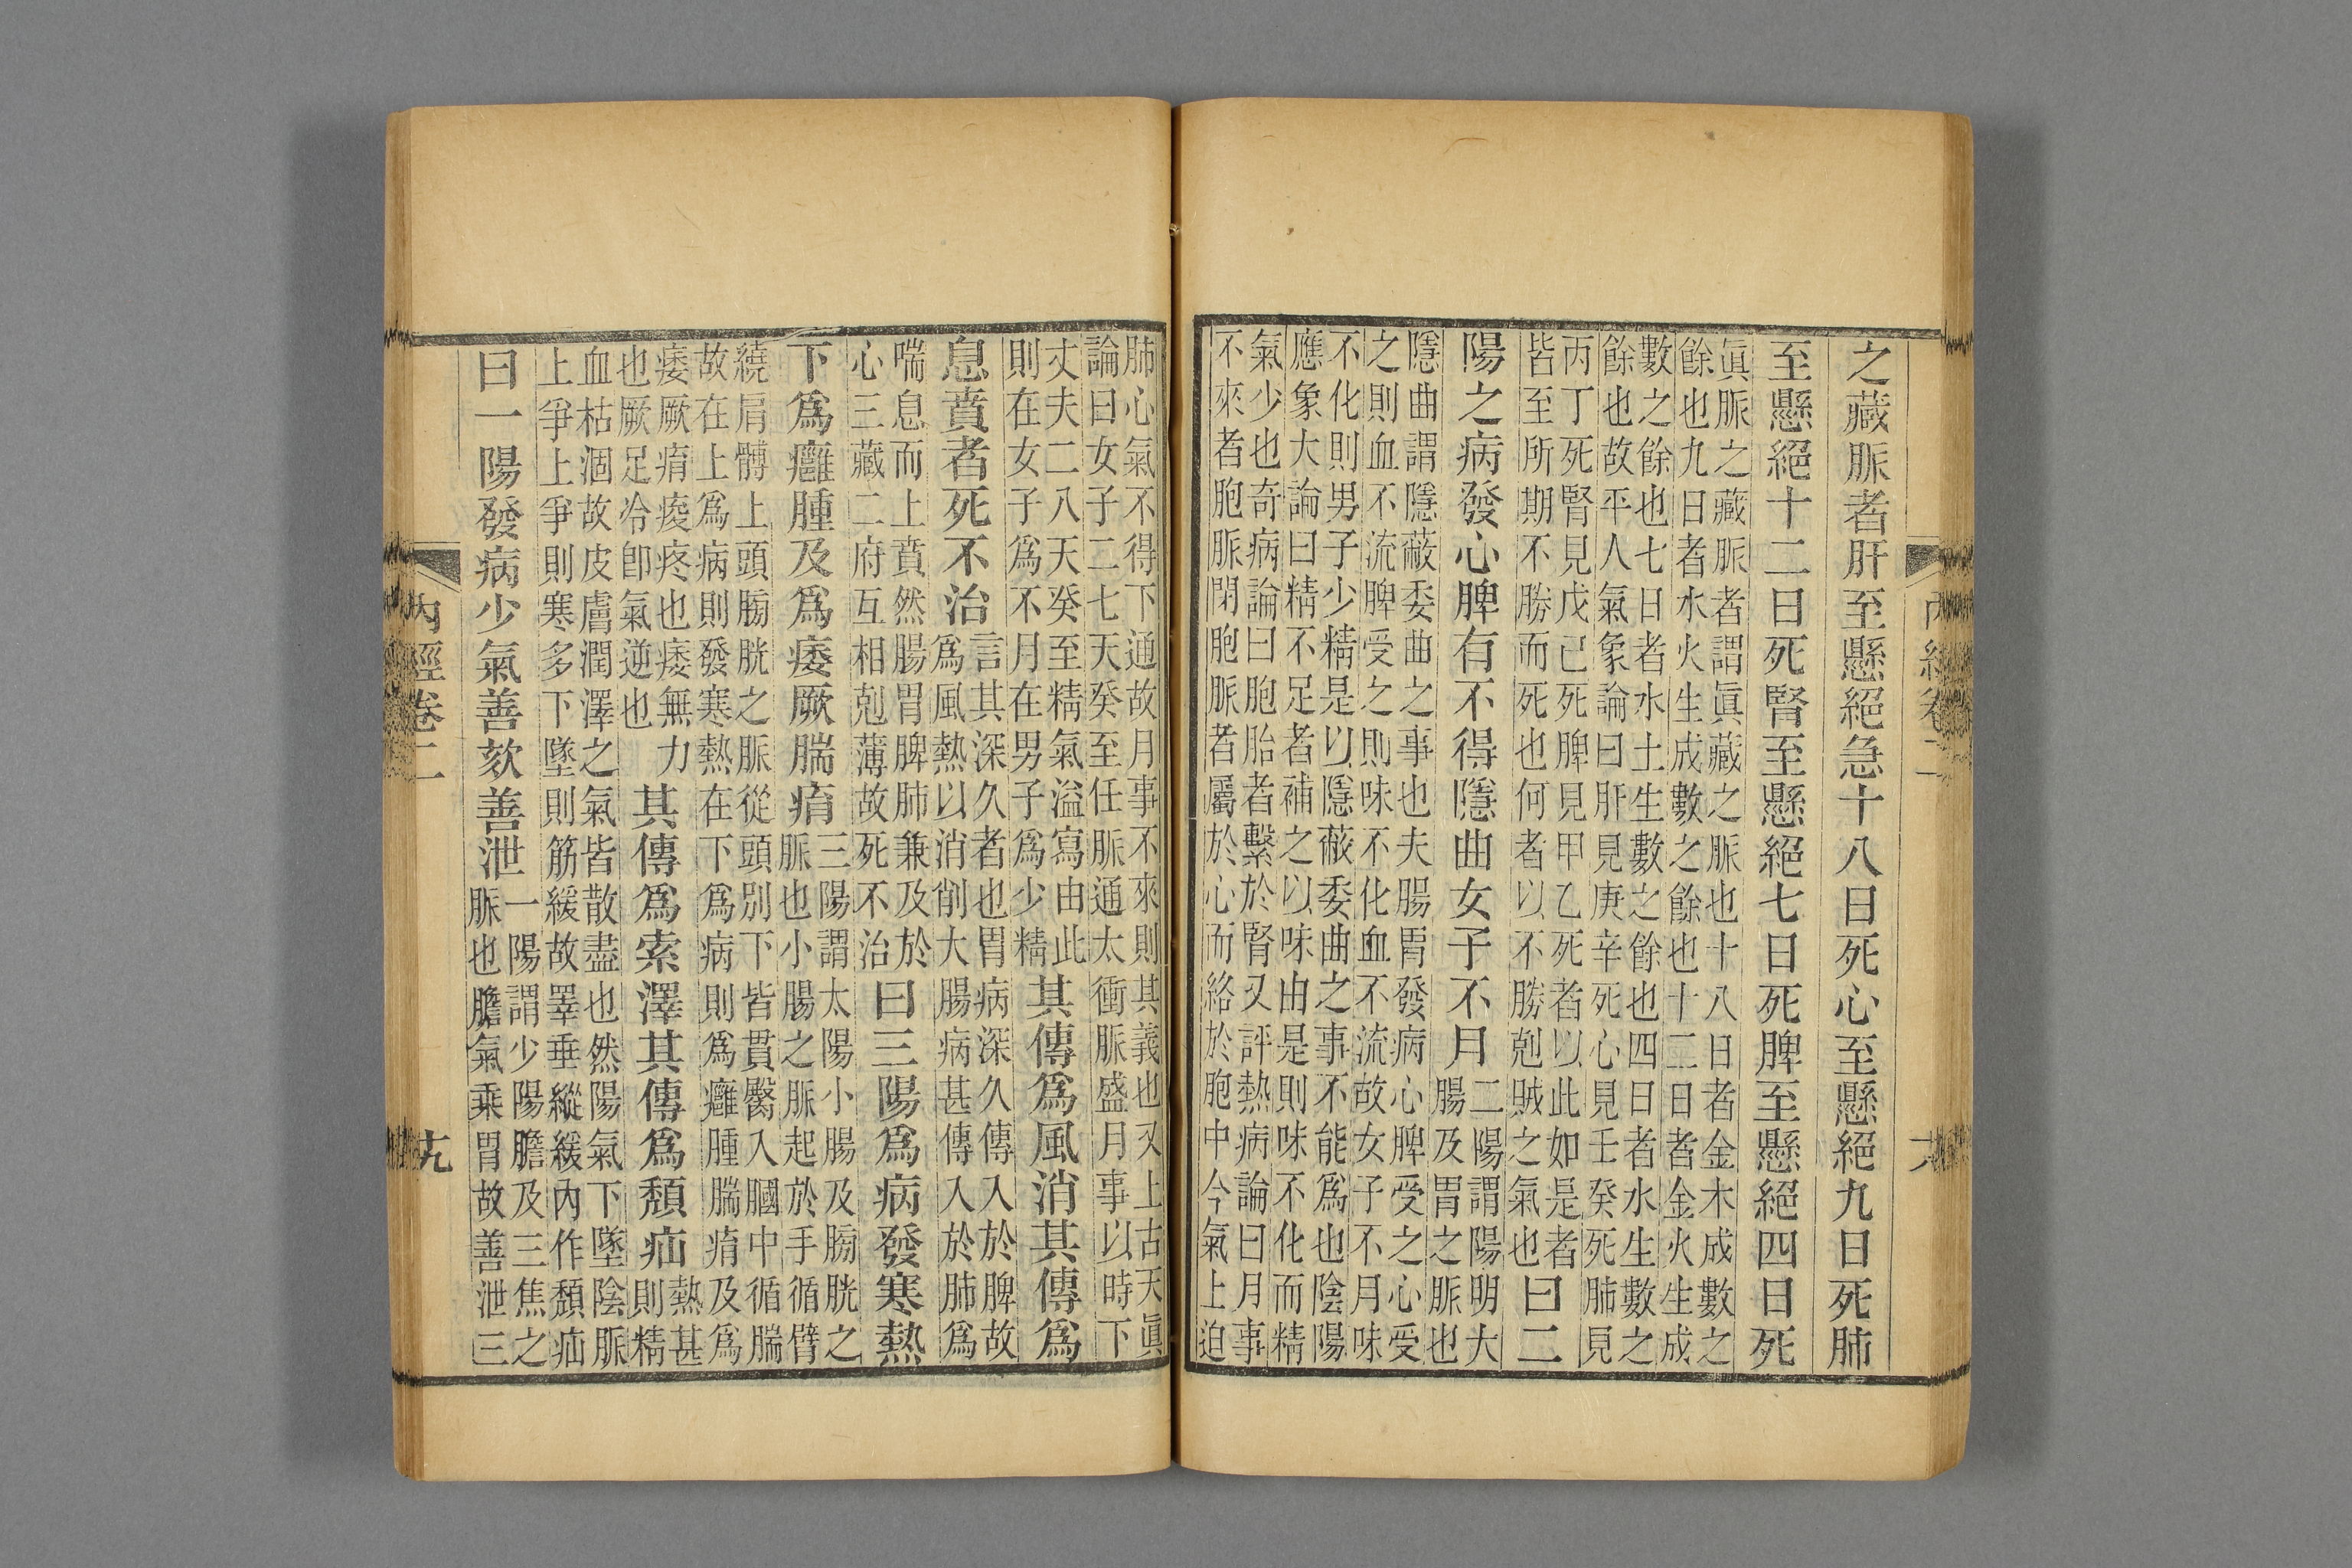 之藏脈者肝至懸絕急十八日死心至懸絕九日死肺
至懸絕十二日死腎至懸絕七日死脾至懸絕四日死
眞脈之藏脈者謂眞藏之脈也十八日者金木成數之
餘也九日者水火生成數之餘也十二日者金火生成
數之餘也七日者水土生數之餘也四日者水生數之
餘也故平人氣象論曰肝見庚辛死心見壬癸死肺見
丙丁死腎見戊己死脾見甲乙死者以此如是者
皆至所期不勝而死也何者以不勝剋賊之氣也
曰二
陽之病發心脾有不得隱曲女子不月
二陽謂陽明大
腸及胃之脈也
隱曲謂隱蔽委曲之事也夫腸胃發病心脾受之心受
之則血不流脾受之則味不化血不流故女子不月味
不化則男子少精是以隱蔽委曲之事不能爲也陰陽
應象大論曰精不足者補之以味由是則味不化而精
氣少也奇病論曰胞胎者繫於腎又評熱病論曰月事
不來者胞脈閉胞脈者屬於心而絡於胞中今氣上迫
肺心氣不得下通故月事不來則其義也又上古天眞
論曰女子二七天癸至任脈通太衝脈盛月事以時下
丈夫二八天癸至精氣溢寫由此
則在女子爲不月在男子爲少精
其傳爲風消其傳爲
息賁者死不治
言其深久者也胃病深久傳入於脾故
爲風熱以消削大腸病甚傳入於肺爲
喘息而上賁然腸胃脾肺兼及於
心三藏二府互相剋薄故死不治
曰三陽爲病發寒熱
下爲癰腫及爲痿厥腨㾓
三陽謂太陽小腸及膀胱之
脈也小腸之脈起於手循臂
繞肩髆上頭膀胱之脈從頭別下皆貫臀入膕中循腨
故在上爲病則發寒熱在下爲病則爲癰腫腨㾓及爲
痿厥㾓痠疼也痿無力
也厥足冷卽氣逆也
其傳爲索澤其傳爲㿗疝
熱甚
則精
血枯涸故皮膚潤澤之氣皆散盡也然陽氣下墜陰脈
上爭上爭則寒多下墜則筋緩故睪垂縱緩內作㿗疝
曰一陽發病少氣善欬善泄
一陽謂少陽膽及三焦之
脈也膽氣乘胃故善泄三
內經卷二
十九